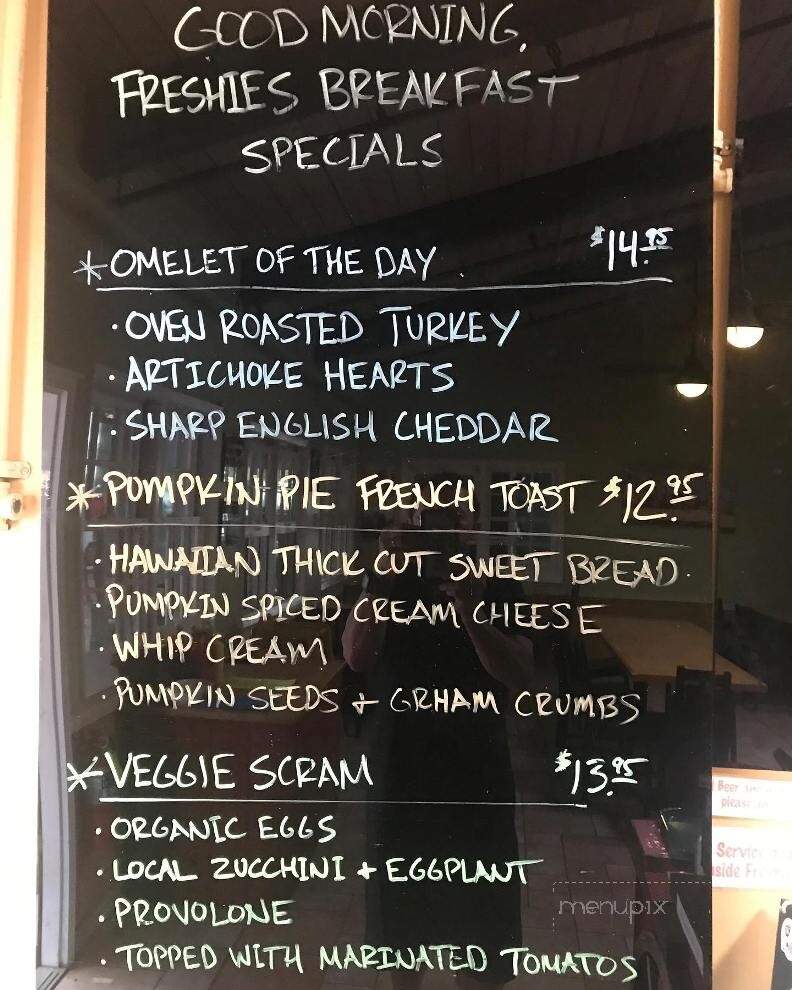 GOOD MORNING,
FRESHIES BREAKFAST
SPECIALS
* OMELET OF THE DAY $14.95
· OVEN ROASTED TURKEY
· ARTICHOKE HEARTS
· SHARP ENGLISH CHEDDAR
* PUMPKIN PIE FRENCH TOAST $12.95
· HAWAIIAN THICK CUT SWEET BREAD
· PUMPKIN SPICED CREAM CHEESE
· WHIP CREAM
· PUMPKIN SEEDS + GRHAM CRUMBS
* VEGGIE SCRAM $13.95
· ORGANIC EGGS
· LOCAL ZUCCHINI + EGGPLANT
· PROVOLONE
· TOPPED WITH MARINATED TOMATOS
Beer
please
Service
menupix